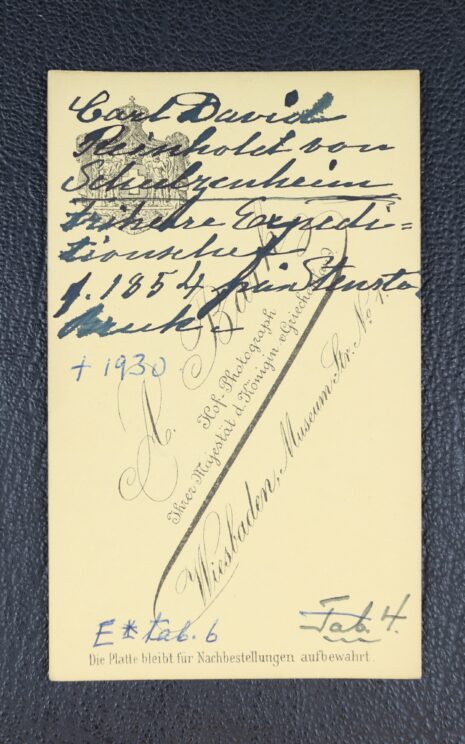 Carl David
Reinhold von
Schulzenheim
friherre Expedi=
tionschef
f. 1854 på Stensta
bruk.
+ 1930
A. Bark
Hof-Photograph
Ihrer Majestät d. Königin v. Griechenland
Wiesbaden, Museum-Str. No. 1.
E* tab. 6
Tab. 4.
Die Platte bleibt für Nachbestellungen aufbewahrt.